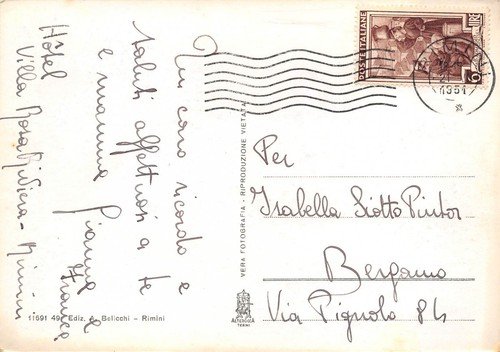 Un caro ricordo e
saluti affettuosi a te
e mamma Gianna e
Franca
Hôtel
Villa Rosa Riviera - Rimini
11691 49 Ediz. A. Bellechi - Rimini
VERA FOTOGRAFIA - RIPRODUZIONE VIETATA
POSTE ITALIANE
LIRE
6
1951
Per
Isabella Siotto Pintor
Bergamo
Via Pignolo 84
ALTEROCCA
TERNI